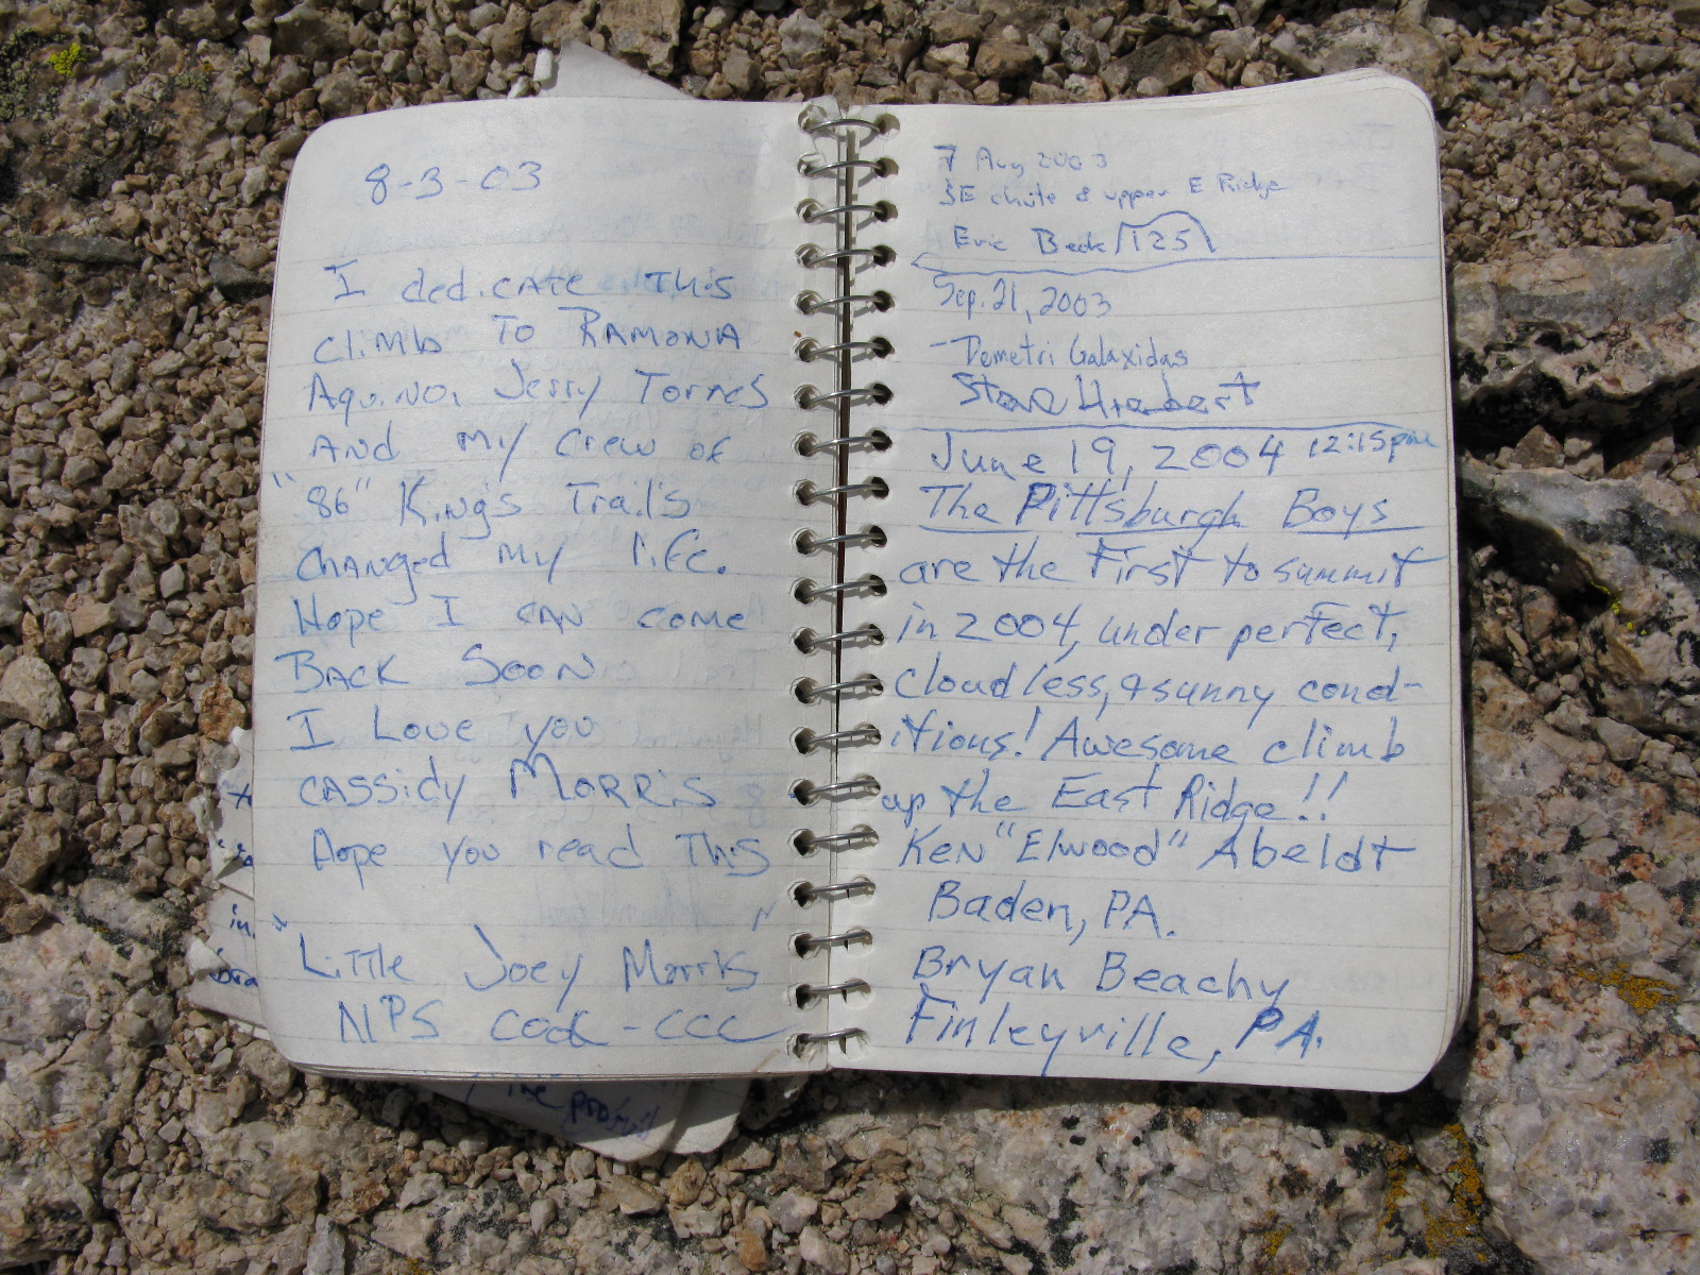 8-3-03
I dedicate this
climb to Ramona
Aquino, Jerry Torres
and my crew of
"86" King's Trails
changed my life.
Hope I can come
Back Soon
I Love you
cassidy Morris
Hope you read This
"Little Joey Morris
NPS Cook - CCC
7 Aug 2003
SE chute & upper E Ridge
Eric Beck 125
Sep. 21, 2003
- Demetri Galaxidas
Steve
June 19, 2004 12:15pm
The Pittsburgh Boys
are the first to summit
in 2004, under perfect,
cloudless, & sunny cond-
itions! Awesome climb
up the East Ridge!!
Ken "Elwood" Abeldt
Baden, PA.
Bryan Beachy
Finleyville, PA.
The